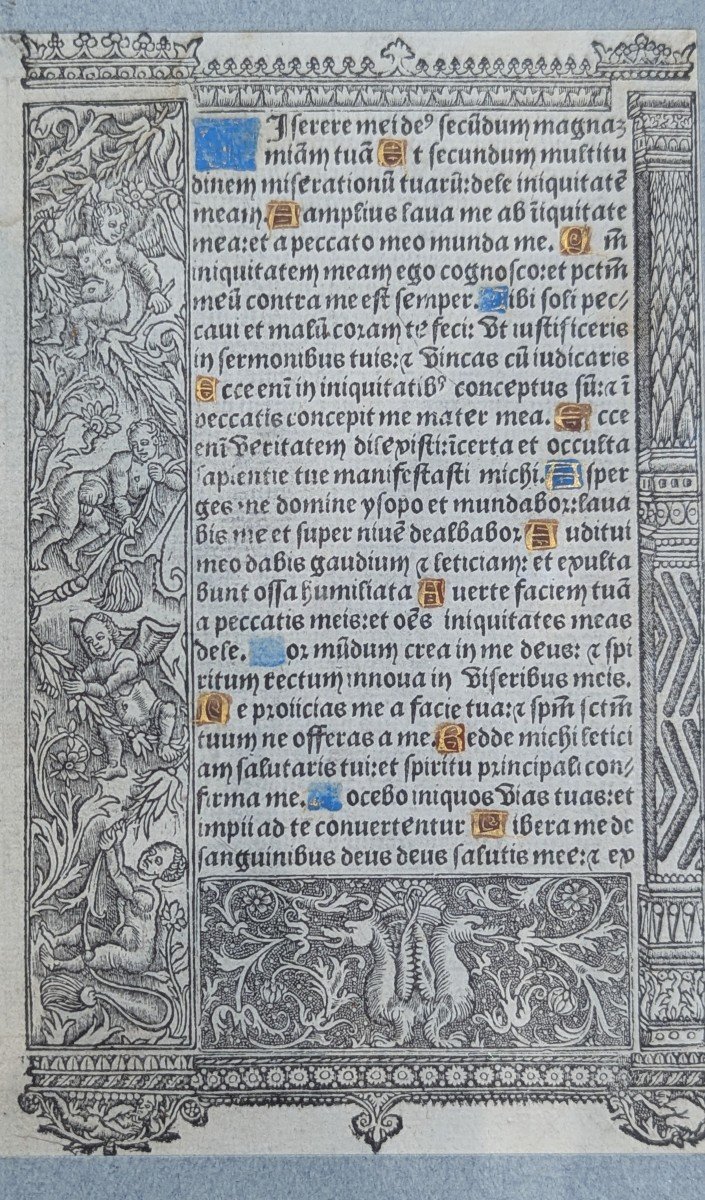 Iserere mei deꝰ secūdum magnaꝫ
miām tuā Et secundum multitu
dinem miserationū tuarū: dele iniquitatē
meam. Amplius laua me ab īiquitate
mea: et a peccato meo munda me. Qm̄
iniquitatem meam ego cognosco: et pctm̄
meū contra me est semper. ibi soli pec/
caui et malū coram te feci: Vt iustificeris
in sermonibus tuis: ⁊ Vincas cū iudicaris
Ecce enī in iniquitatibꝰ conceptus sū: ⁊ ī
peccatis concepit me mater mea. Ecce
enī Veritatem dilexisti: īcerta et occulta
sapientie tue manifestasti michi. Asper
ges me domine ysopo et mundabor: laua
bis me et super niuē dealbabor Auditui
meo dabis gaudium ⁊ leticiam: et exulta
bunt ossa humiliata Auerte faciem tuā
a peccatis meis: et oēs iniquitates meas
dele. or mūdum crea in me deus: ⁊ spi
ritum rectum innoua in Visceribus meis.
Ne proiicias me a facie tua: ⁊ spm̄ sctm̄
tuum ne offeras a me. Redde michi letici
am salutaris tui: et spiritu principali con/
firma me. ocebo iniquos Vias tuas: et
impii ad te conuertentur Libera me de
sanguinibus deus deus salutis mee: ⁊ ex